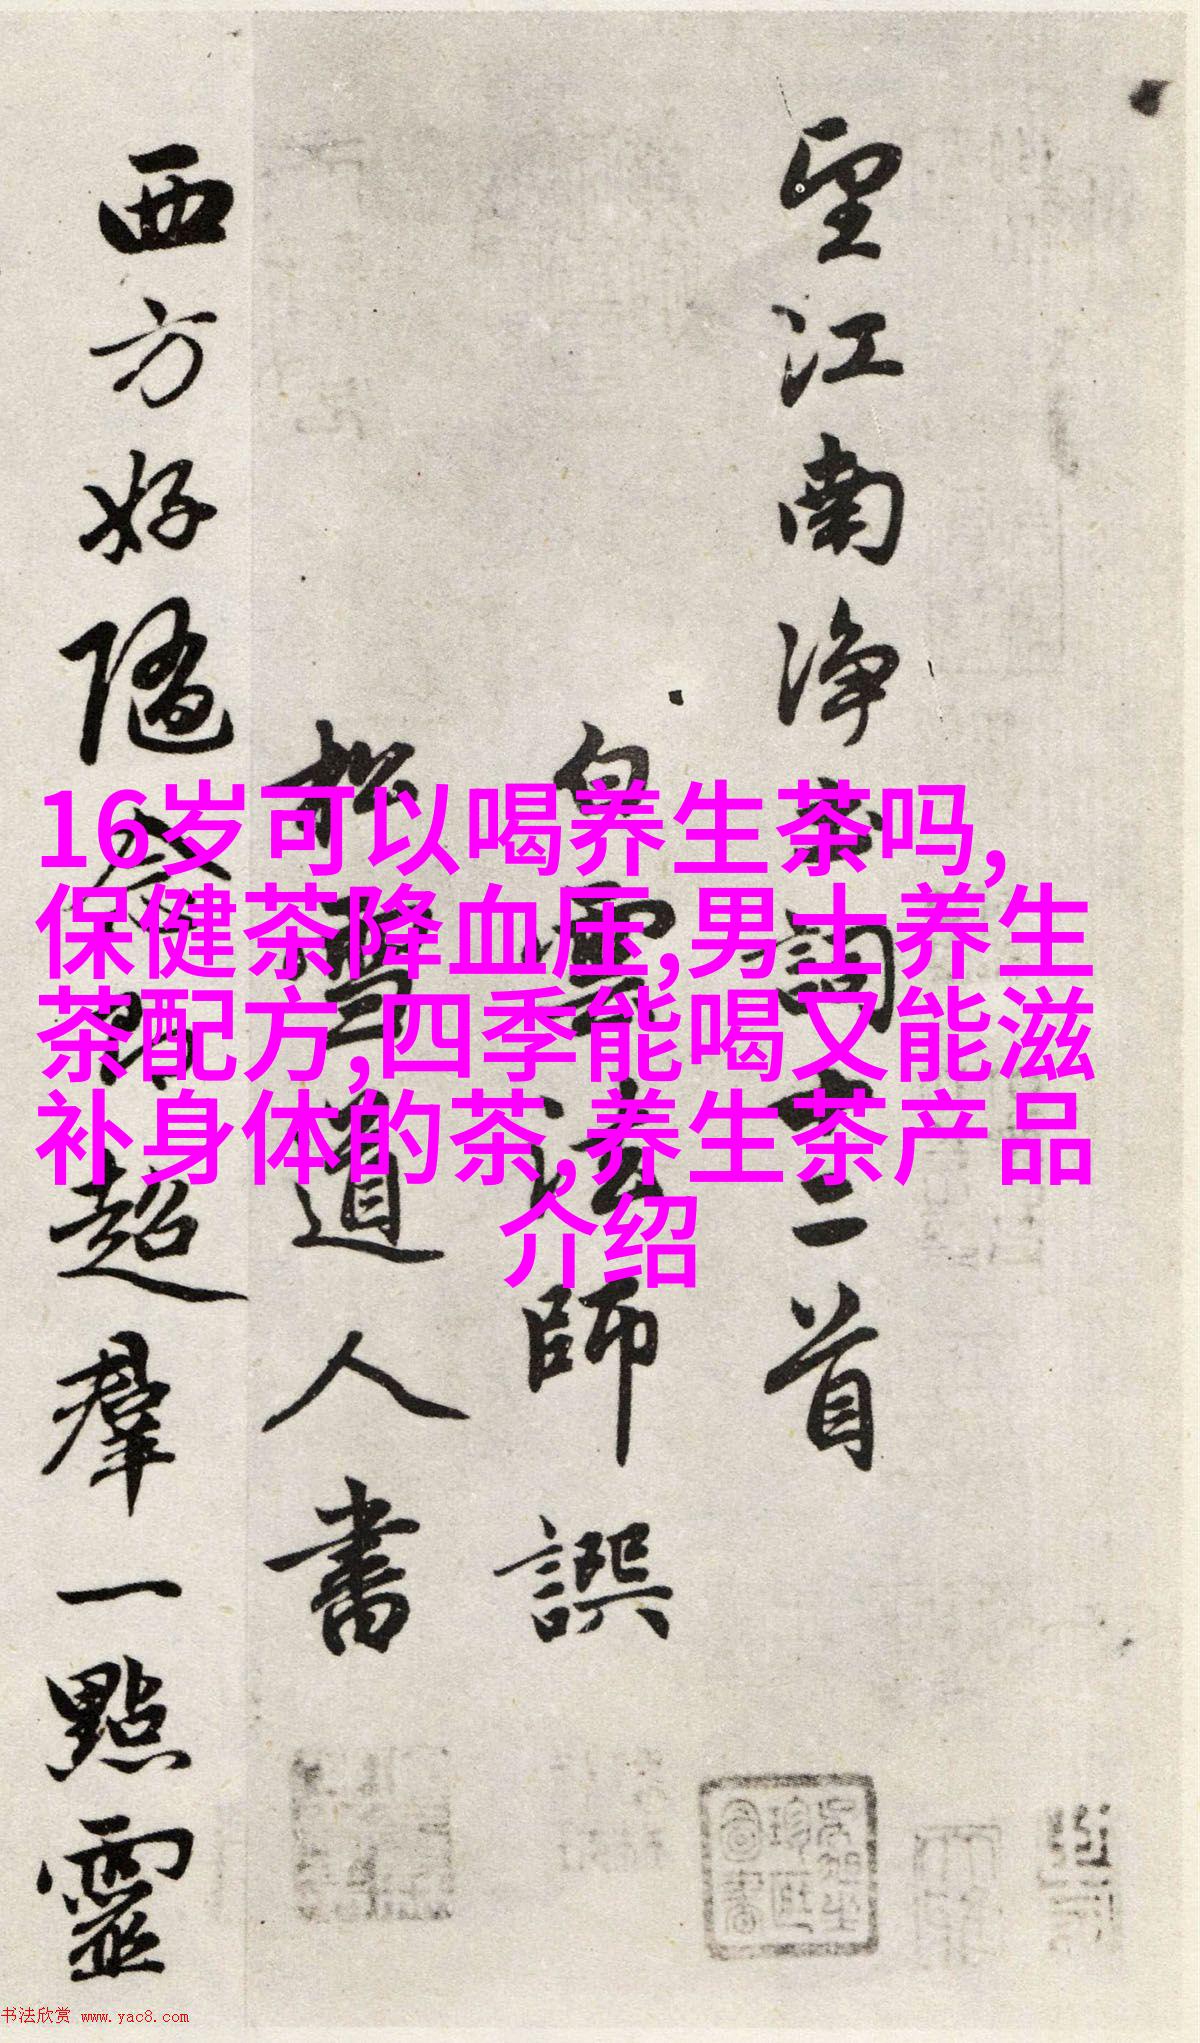 望江南净土詞十二首
白雲法師譔
松雪道人書
西方好隨念即超羣一點靈
16岁可以喝养生茶吗,
保健茶降血压,男士养生
茶配方,四季能喝又能滋
补身体的茶,养生茶产品
介绍
书法欣赏 www.yac8.com